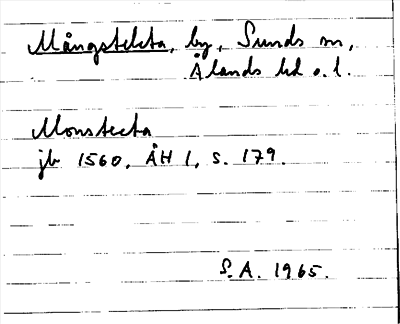 Mångstekta, by, Sunds sn,
Ålands hd o. l.
Monstecta
jb 1560, ÅH 1, s. 179.
S. A. 1965.